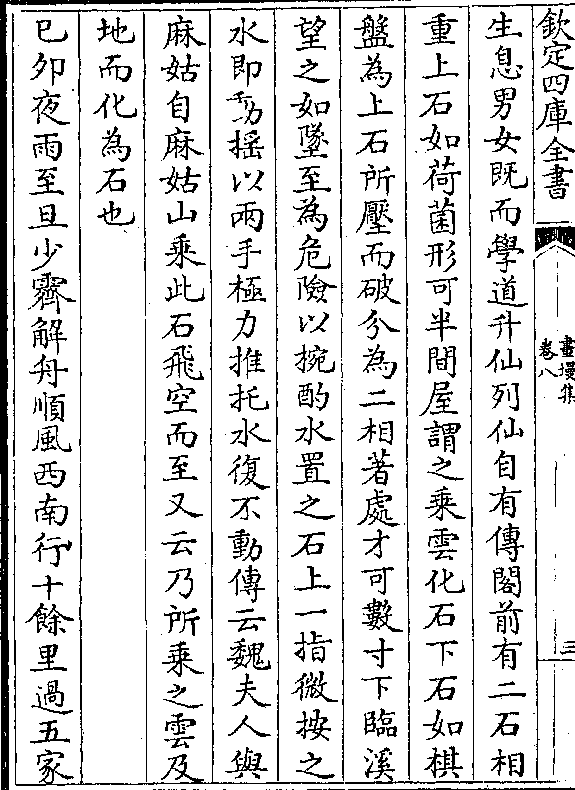 欽定四庫全書
畫墁集
卷八
三
生息男女既而學道升仙列仙自有傳閣前有二石相
重上石如荷菌形可半間屋謂之乗雲化石下石如棋
盤為上石所壓而破分為二相著處才可數寸下臨溪
望之如墜至為危險以椀酌水置之石上一指微按之
水即動揺以兩手極力推托水復不動傳云魏夫人與
麻姑自麻姑山乗此石飛空而至又云乃所乗之雲及
地而化為石也
己夘夜雨至旦少霽解舟順風西南行十餘里過五家